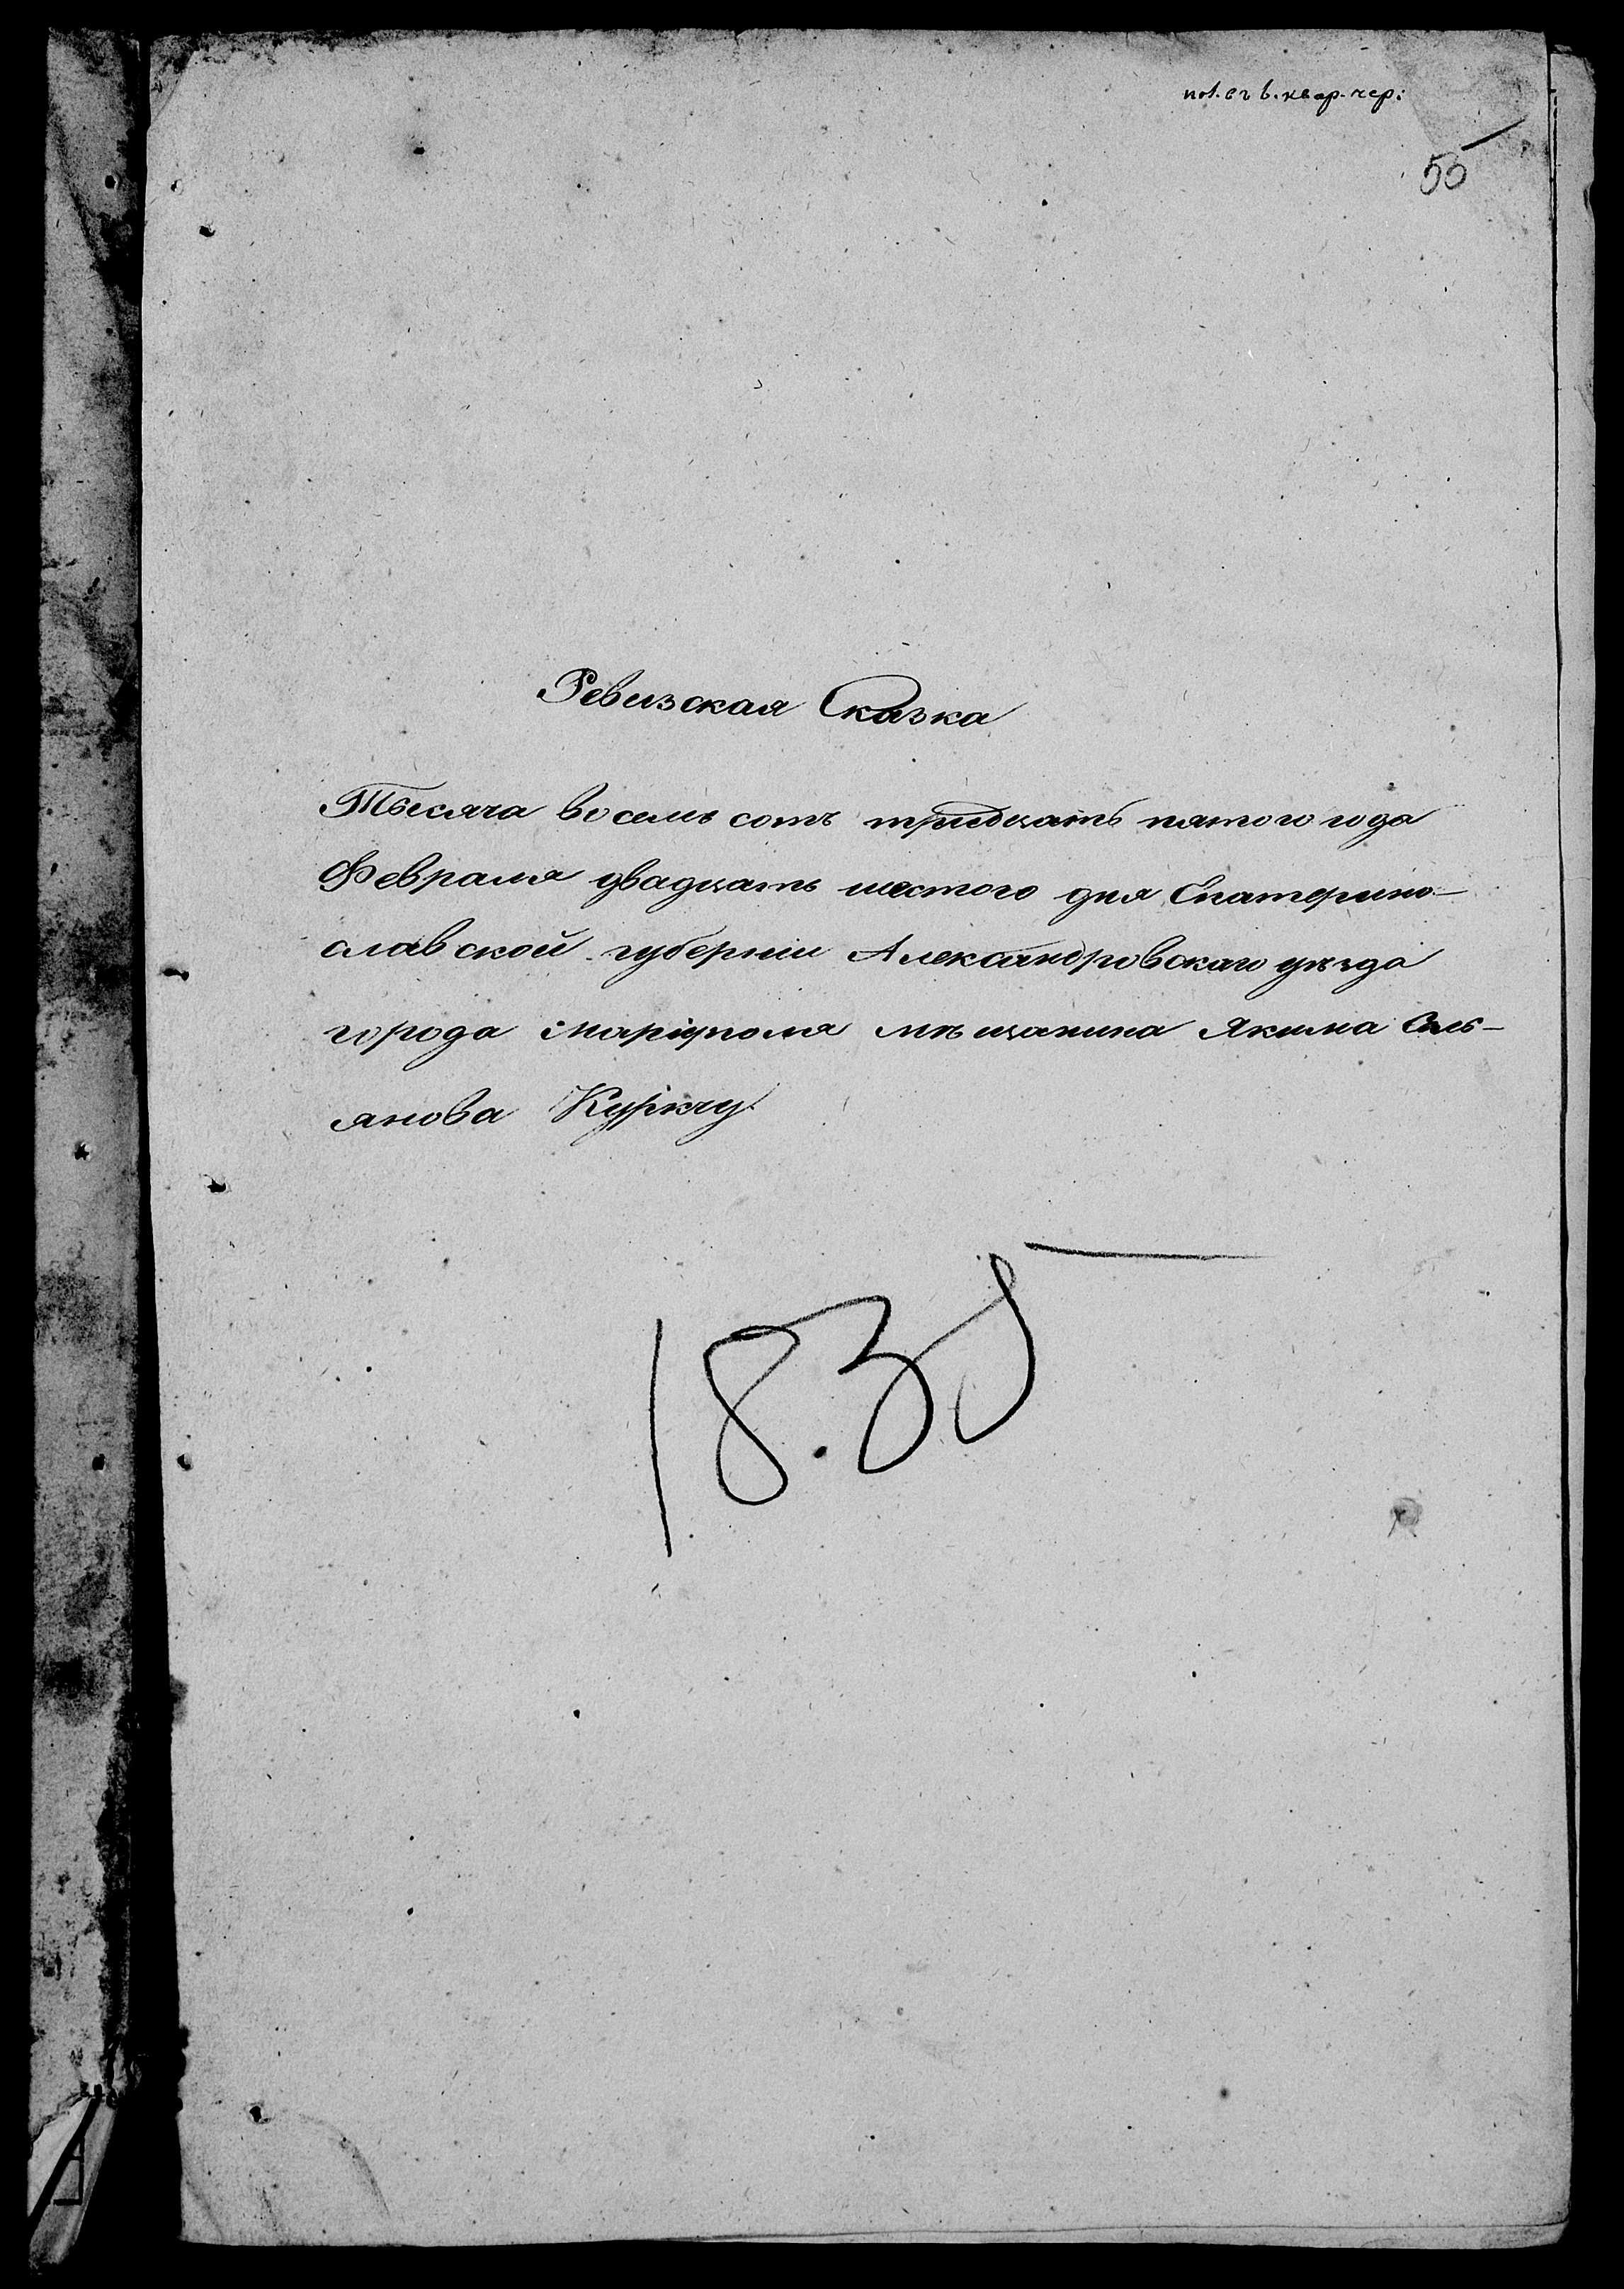 55
Ревизская Сказка
Тысяча восемь сотъ тридцать пятого года
Февраля двадцать шестого дня Екатерино-
славской губерніи Александровскаго уѣзда
города Маріуполя мѣщанина Якима
янова Куркчу
1835